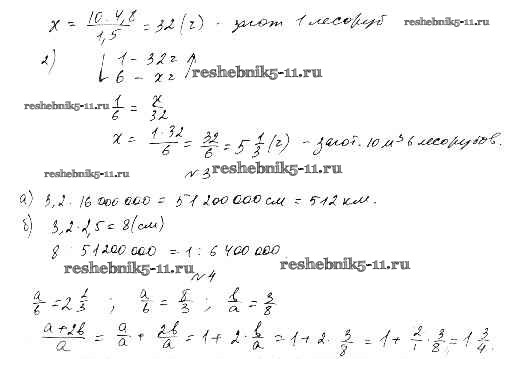 x = 10·4,8 / 1,5 = 32 (г) - загот 1 лесоруб
reshebnik5-11.ru
2) ↓ 1 - 32г ↑
6 - xг
reshebnik5-11.ru
reshebnik5-11.ru
1/6 = x/32
x = 1·32/6 = 32/6 = 5 1/3 (г) - загот. 10 м³ 6 лесорубов.
reshebnik5-11.ru
№3
reshebnik5-11.ru
а) 3,2 · 16 000 000 = 51 200 000 см = 512 км.
б) 3,2·2,5 = 8 (см)
8 : 51200 000 = 1 : 6 400 000
reshebnik5-11.ru
№4
reshebnik5-11.ru
a/b = 2 2/3 ; a/b = 8/3 ; b/a = 3/8
a+2b/a = a/a + 2b/a = 1 + 2 · b/a = 1 + 2 · 3/8 = 1 + 2/1 · 3/8 = 1 3/4.